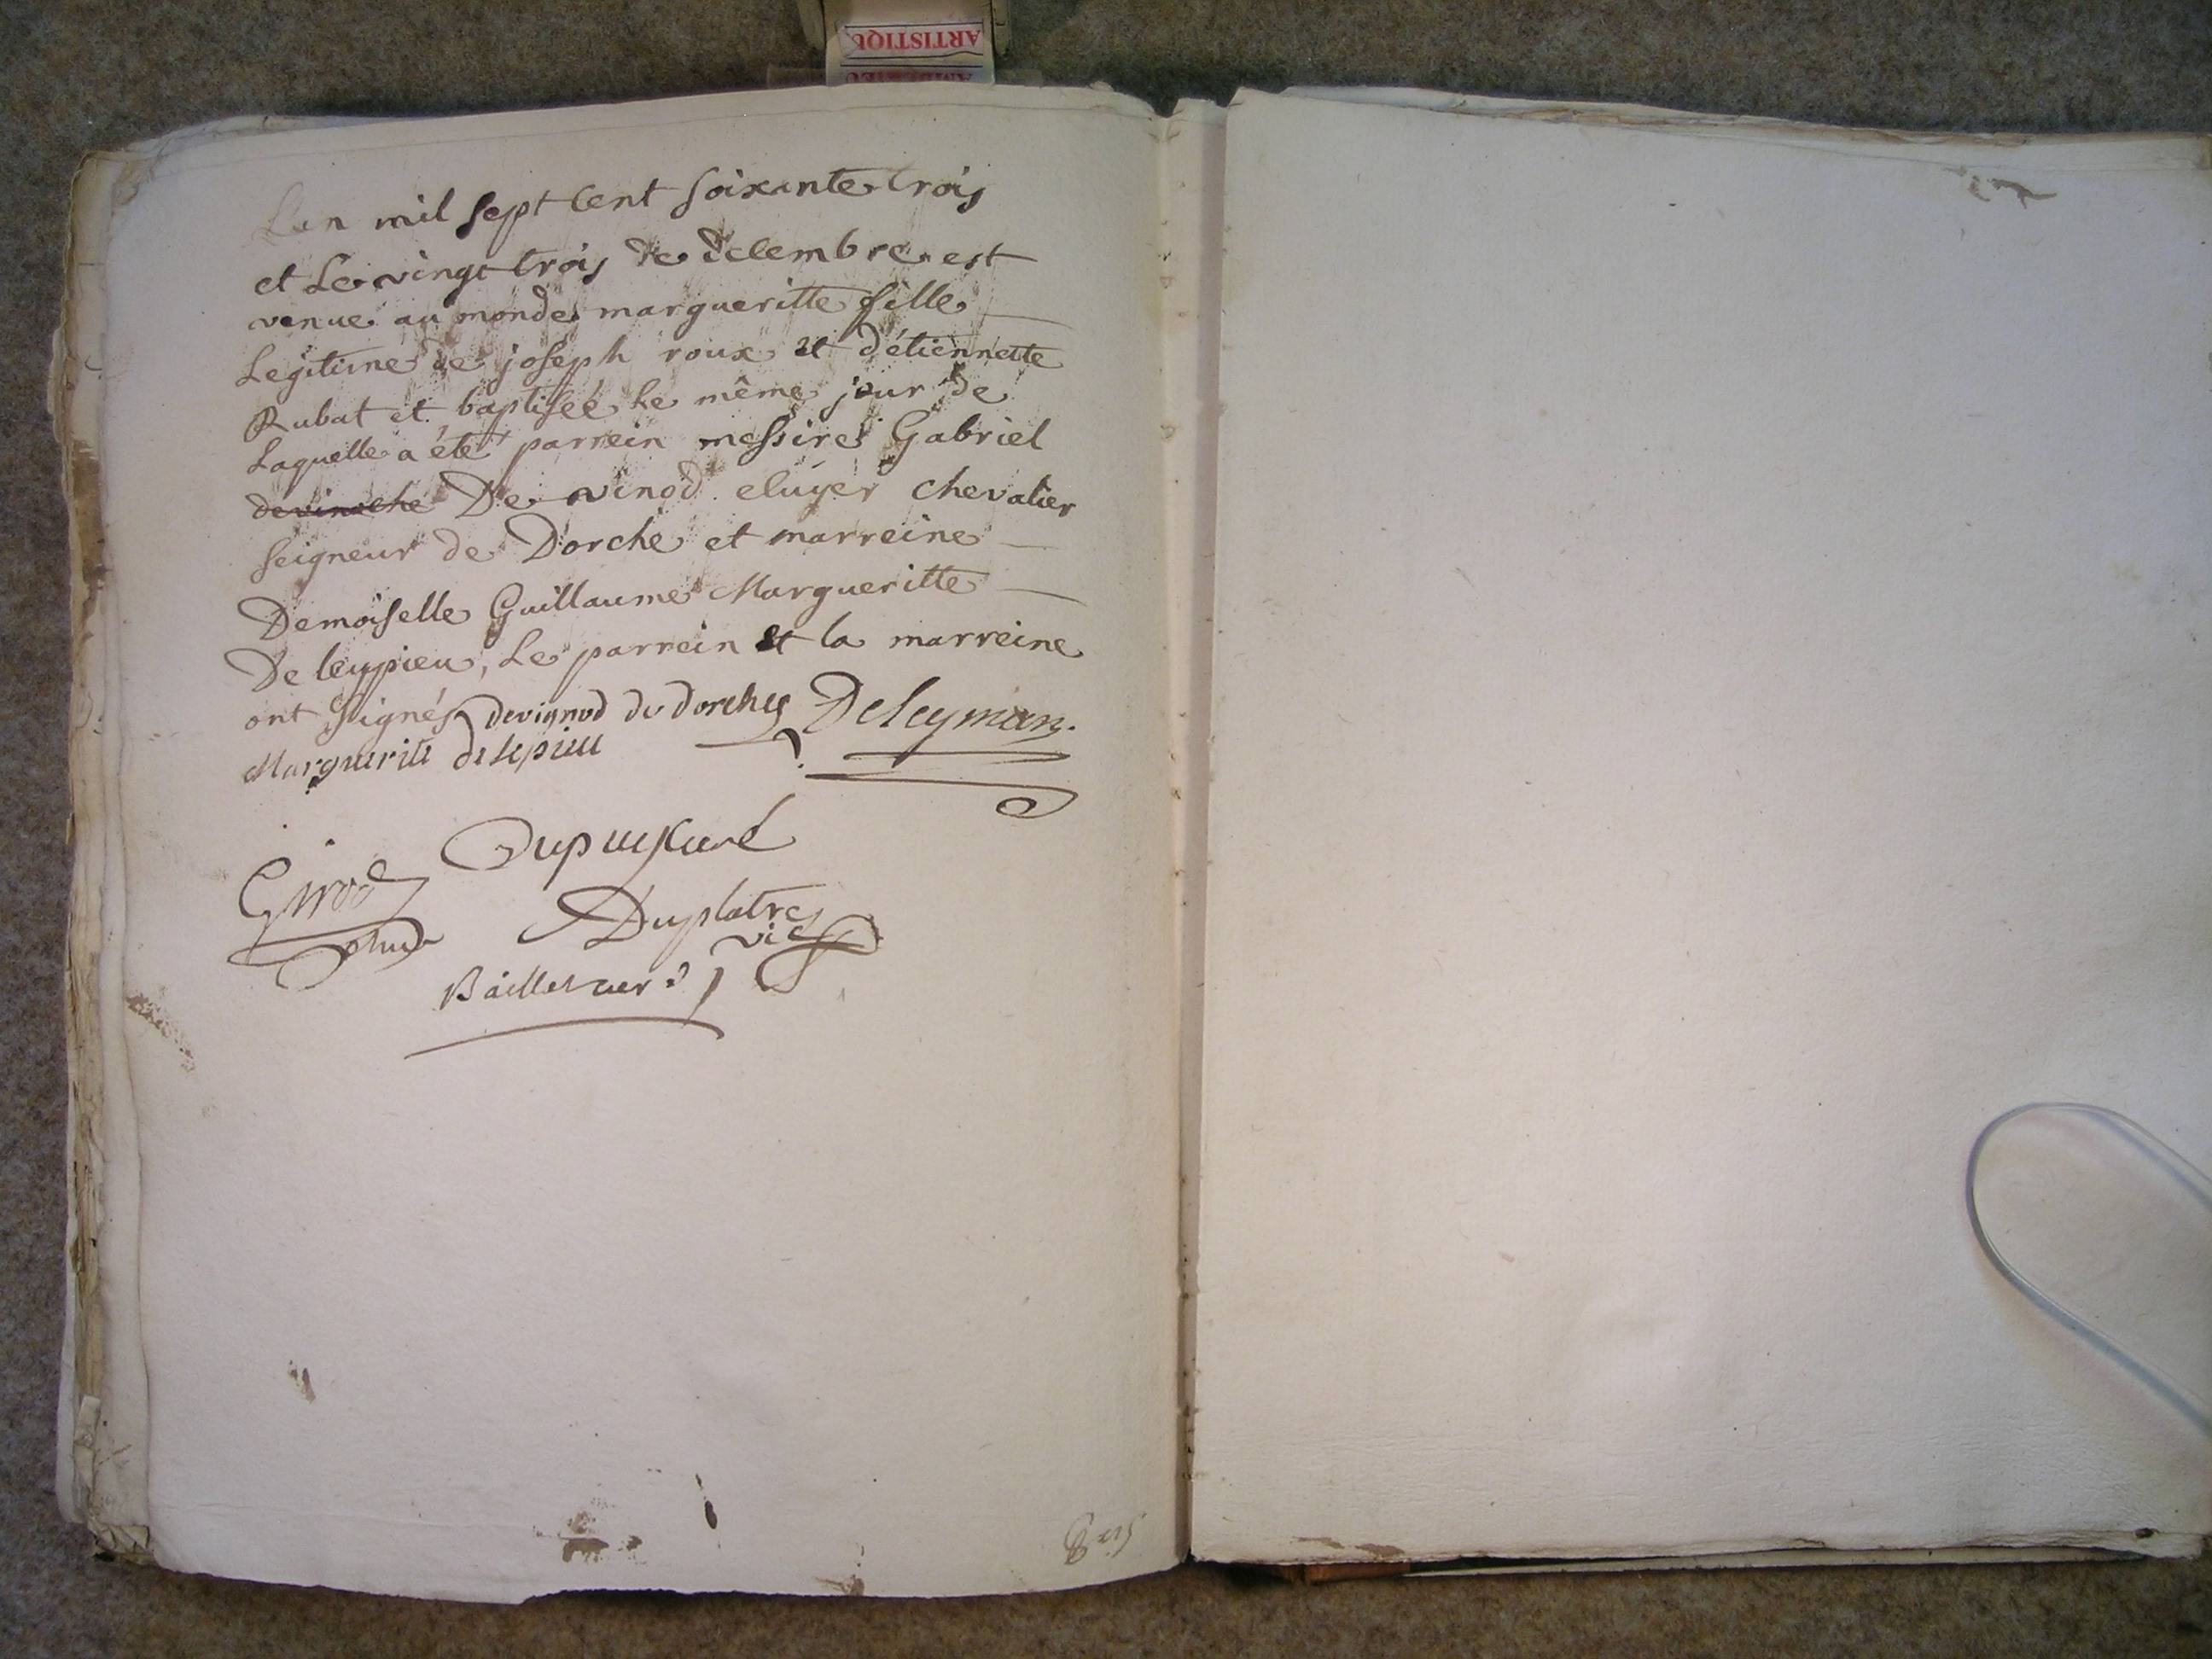 ARTISTIQU
L'an mil sept cent soixante trois
et Le vingt trois de decembre est
venue au monde margueritte fille
Legitime de joseph roux et d'étiennette
Rubat et baptisée Le même jour de
Laquelle a été parrein messire Gabriel
devinoche De vinod ecuyer chevalier
seigneur de Dorche et marreine
Demoiselle Guillaume Margueritte
De leypieu, Le parrein et la marreine
ont signés devignod de dorches Deleyman.
Marguerite de lepieu
Dupuy Curé
Girod
Duplatre
vic
Baillet curé